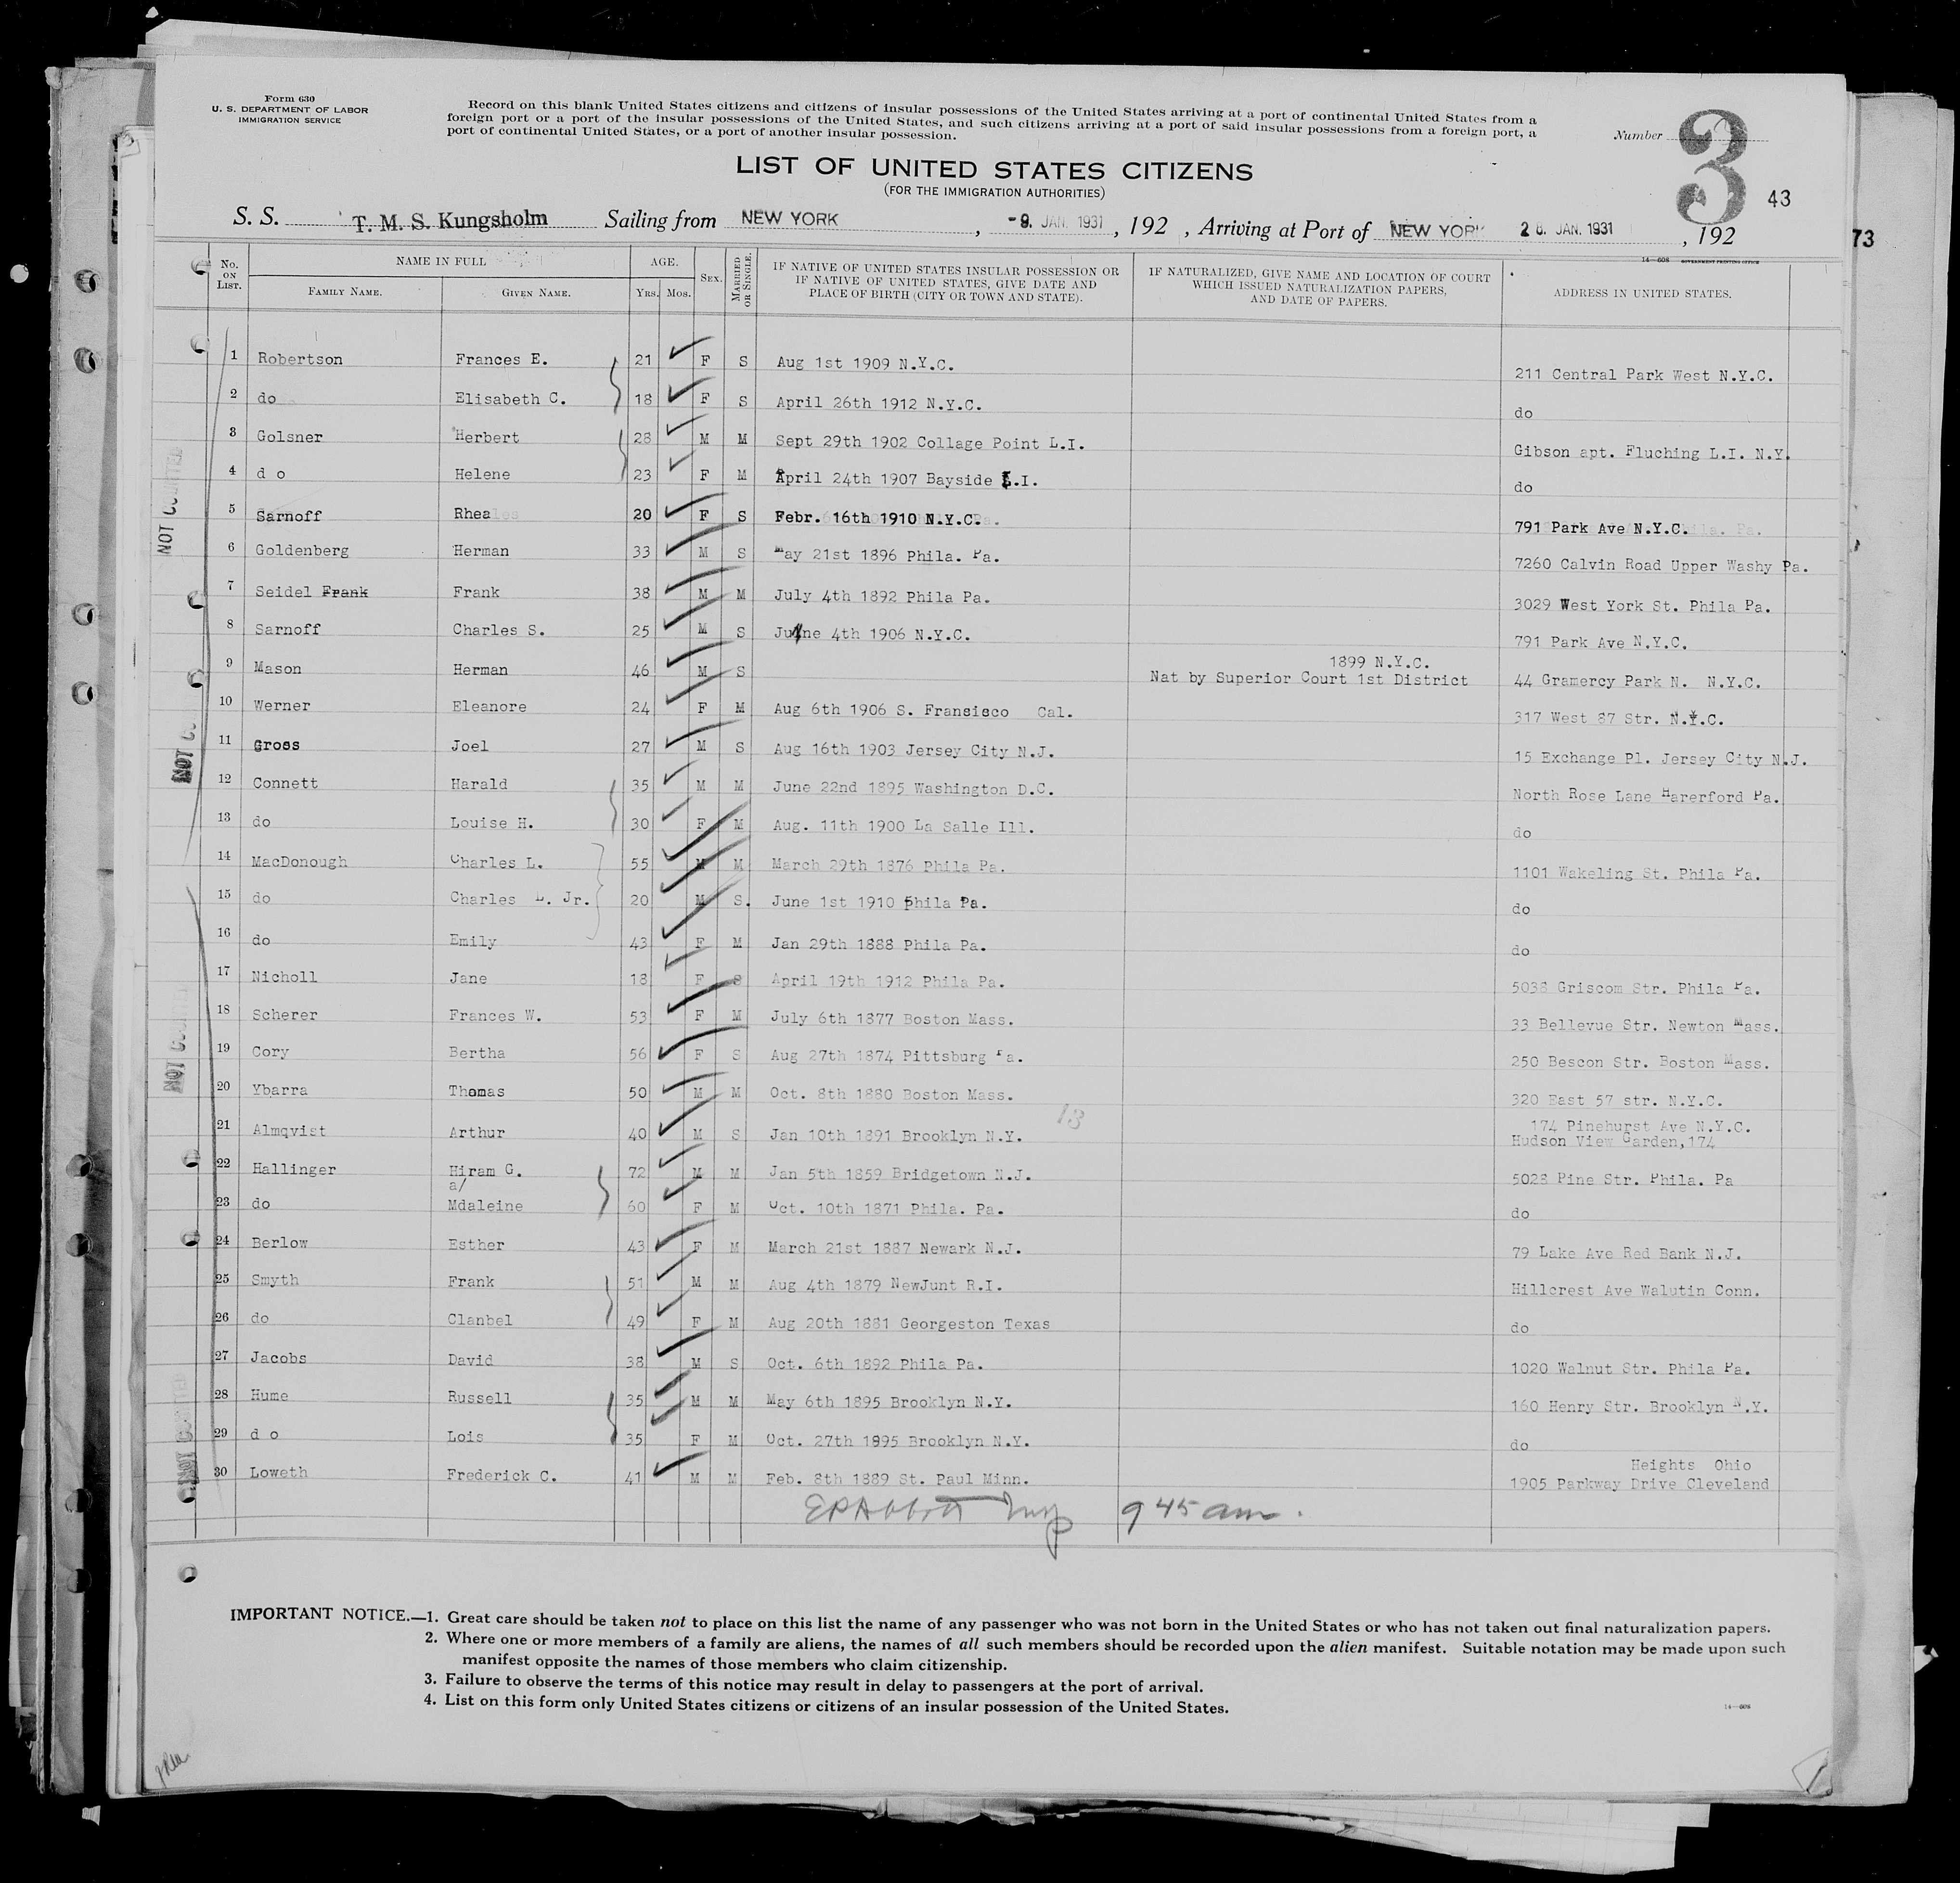 Form 630
U. S. DEPARTMENT OF LABOR
IMMIGRATION SERVICE
Record on this blank United States citizens and citizens of insular possessions of the United States arriving at a port of continental United States from a
foreign port or a port of the insular possessions of the United States, and such citizens arriving at a port of said insular possessions from a foreign port, a
port of continental United States, or a port of another insular possession.
Number 3
43
73
LIST OF UNITED STATES CITIZENS
(FOR THE IMMIGRATION AUTHORITIES)
S. S. T. M. S. Kungsholm Sailing from NEW YORK, -9. JAN. 1931, 192 , Arriving at Port of NEW YORK 26. JAN. 1931, 192
14-608 GOVERNMENT PRINTING OFFICE
No. ON LIST. NAME IN FULL FAMILY NAME. GIVEN NAME. AGE. YRS. MOS. SEX. MARRIED OR SINGLE. IF NATIVE OF UNITED STATES INSULAR POSSESSION OR IF NATIVE OF UNITED STATES, GIVE DATE AND PLACE OF BIRTH (CITY OR TOWN AND STATE). IF NATURALIZED, GIVE NAME AND LOCATION OF COURT WHICH ISSUED NATURALIZATION PAPERS, AND DATE OF PAPERS. ADDRESS IN UNITED STATES.
1 Robertson Frances E. 21 F S Aug 1st 1909 N.Y.C. 211 Central Park West N.Y.C.
2 do Elisabeth C. 18 F S April 26th 1912 N.Y.C. do
3 Golsner Herbert 28 M M Sept 29th 1902 Collage Point L.I. Gibson apt. Fluching L.I. N.Y.
4 d o Helene 23 F M April 24th 1907 Bayside L.I. do
5 Sarnoff Rhea 20 F S Febr. 16th 1910 N.Y.C. 791 Park Ave N.Y.C.
6 Goldenberg Herman 33 M S May 21st 1896 Phila. Pa. 7260 Calvin Road Upper Washy Pa.
7 Seidel Frank Frank 38 M M July 4th 1892 Phila Pa. 3029 West York St. Phila Pa.
8 Sarnoff Charles S. 25 M S June 4th 1906 N.Y.C. 791 Park Ave N.Y.C.
9 Mason Herman 46 M S 1899 N.Y.C.
Nat by Superior Court 1st District 44 Gramercy Park N. N.Y.C.
10 Werner Eleanore 24 F M Aug 6th 1906 S. Fransisco Cal. 317 West 87 Str. N.Y.C.
11 Gross Joel 27 M S Aug 16th 1903 Jersey City N.J. 15 Exchange Pl. Jersey City N.J.
12 Connett Harald 35 M M June 22nd 1895 Washington D.C. North Rose Lane Harerford Pa.
13 do Louise H. 30 F M Aug. 11th 1900 La Salle Ill. do
14 MacDonough Charles L. 55 M M March 29th 1876 Phila Pa. 1101 Wakeling St. Phila Pa.
15 do Charles L. Jr. 20 M S. June 1st 1910 Phila Pa. do
16 do Emily 43 F M Jan 29th 1888 Phila Pa. do
17 Nicholl Jane 18 F S April 19th 1912 Phila Pa. 5038 Griscom Str. Phila Pa.
18 Scherer Frances W. 53 F M July 6th 1877 Boston Mass. 33 Bellevue Str. Newton Mass.
19 Cory Bertha 56 F S Aug 27th 1874 Pittsburg Pa. 250 Bescon Str. Boston Mass.
20 Ybarra Thomas 50 M M Oct. 8th 1880 Boston Mass. 320 East 57 str. N.Y.C.
13
21 Almqvist Arthur 40 M S Jan 10th 1891 Brooklyn N.Y. 174 Pinehurst Ave N.Y.C.
Hudson View Garden,174
22 Hallinger Hiram G. 72 M M Jan 5th 1859 Bridgetown N.J. 5028 Pine Str. Phila. Pa
a/
23 do Mdaleine 60 F M Oct. 10th 1871 Phila. Pa. do
24 Berlow Esther 43 F M March 21st 1887 Newark N.J. 79 Lake Ave Red Bank N.J.
25 Smyth Frank 51 M M Aug 4th 1879 NewJunt R.I. Hillcrest Ave Walutin Conn.
26 do Clanbel 49 F M Aug 20th 1881 Georgeston Texas do
27 Jacobs David 38 M S Oct. 6th 1892 Phila Pa. 1020 Walnut Str. Phila Pa.
28 Hume Russell 35 M M May 6th 1895 Brooklyn N.Y. 160 Henry Str. Brooklyn N.Y.
29 d o Lois 35 F M Oct. 27th 1895 Brooklyn N.Y. do
30 Loweth Frederick C. 41 M M Feb. 8th 1889 St. Paul Minn. Heights Ohio
1905 Parkway Drive Cleveland
9 45 am.
NOT
NOT
NOT
NOT
IMPORTANT NOTICE.—1. Great care should be taken not to place on this list the name of any passenger who was not born in the United States or who has not taken out final naturalization papers.
2. Where one or more members of a family are aliens, the names of all such members should be recorded upon the alien manifest. Suitable notation may be made upon such
manifest opposite the names of those members who claim citizenship.
3. Failure to observe the terms of this notice may result in delay to passengers at the port of arrival.
4. List on this form only United States citizens or citizens of an insular possession of the United States.
14-608